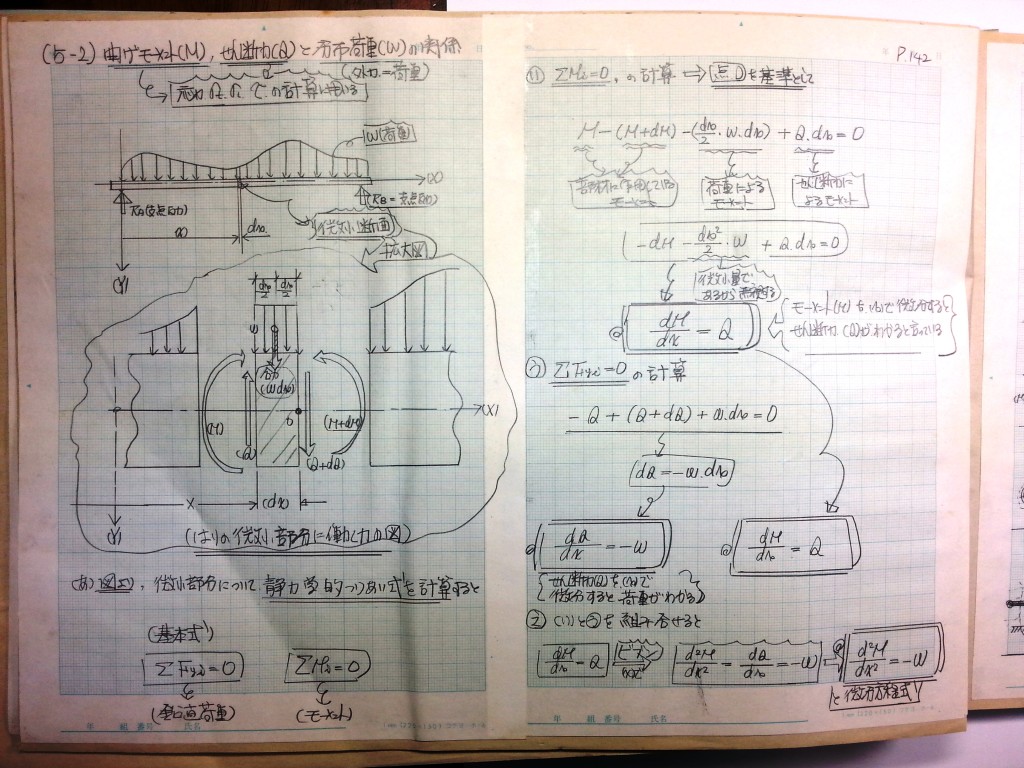 (5-2) 曲げモーメント(M), せん断力(Q)と分布荷重(W)の関係
(外力=荷重)
の計算に用いる
W(荷重)
(X)
RA(支点反力)
(RB=支点反力)
x
dx
微小断面
拡大図
(Y)
dx/2 dx/2
w
合力
(w dx)
(M)
(Q)
(M+dM)
(Q+dQ)
(X)
x
(dx)
(Y)
(はりの微小部分に働く力の図)
(あ) 図より, 微小部分について, 静力学的つりあい式を計算すると
(基本式)
ΣFyi=0
ΣMi=0
(垂直荷重)
(モーメント)
年 組 番号 氏名
P.142
(1) ΣMi=0, の計算 → 点 を基準として
M-(M+dM)-(dx/2・w・dx)+Q・dx=0
モーメント
荷重による
モーメント
せん断力に
よるモーメント
-dM-dx²/2・w+Q・dx=0
微小量で
あるから
dM/dx=Q
モーメント(M)を(x)で微分すると
せん断力(Q)がわかると言っている
ΣFyi=0 の計算
-Q+(Q+dQ)+w・dx=0
dQ=-w・dx
dQ/dx=-w
dM/dx=Q
せん断力(Q)を(x)で
微分すると荷重がわかる
を組み合せると
dM/dx=Q
d²M/dx²=dQ/dx=-w
d²M/dx²=-w
微分方程式
年 組 番号 氏名